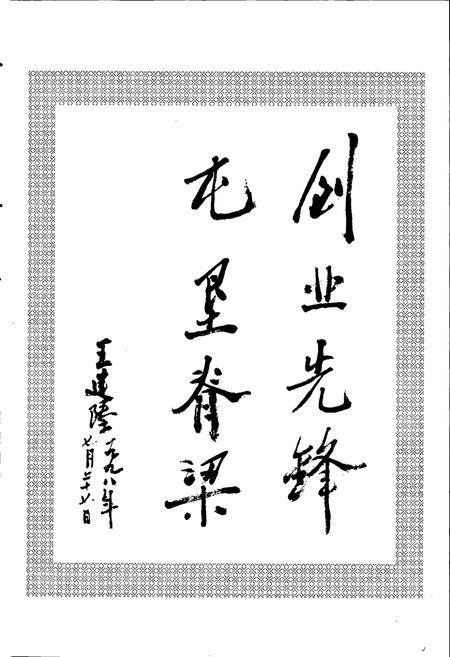 创业先锋
屯垦脊梁
王建陵
一九九八年
七月二十七日